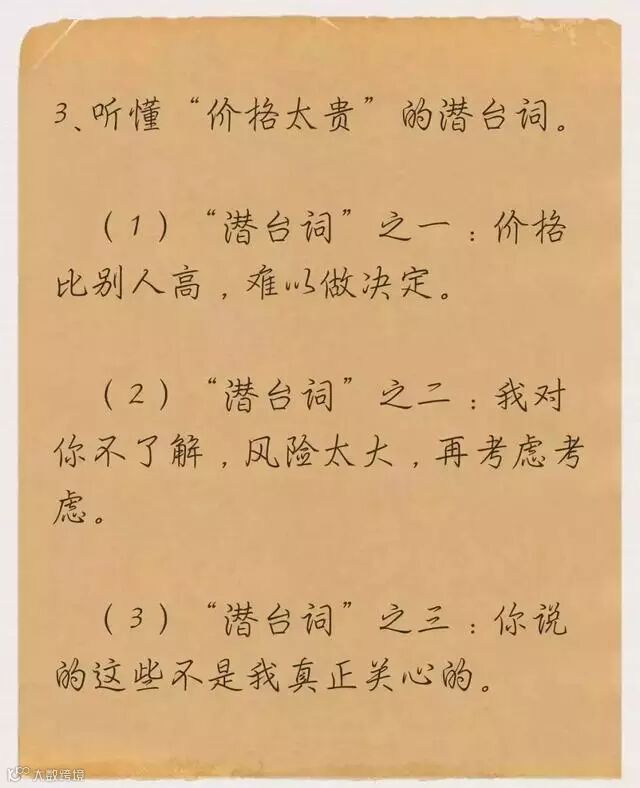 3、听懂“价格太贵”的潜台词。
（1）“潜台词”之一：价格
比别人高，难以做决定。
（2）“潜台词”之二：我对
你不了解，风险太大，再考虑考
虑。
（3）“潜台词”之三：你说
的这些不是我真正关心的。
大数跨境